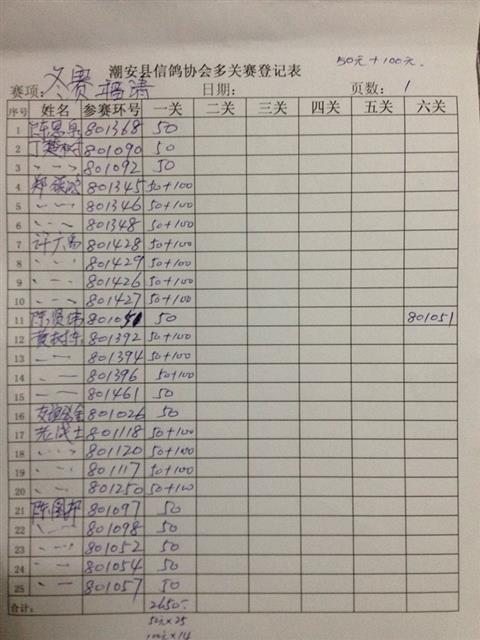 潮安县信鸽协会多关赛登记表 50元+100元.
赛项: 冬赛 福清 日期: 页数: 1
序号 姓名 参赛环号 一关 二关 三关 四关 五关 六关
1 陈恩泉 801368 50
2 丁楚树 801090 50
3 〃 〃 〃 801092 50
4 郑 801345 50+100
5 〃 〃 〃 801346 50+100
6 〃 〃 〃 801348 50+100
7 许六 801428 50+100
8 〃 〃 〃 801429 50+100
9 〃 〃 〃 801426 50+100
10 〃 〃 〃 801427 50+100
11 陈贤 801051 50 801051
12 黄树 801392 50+100
13 〃 〃 801394 50+100
14 〃 〃 801396 50+100
15 〃 〃 801461 50
16 801026 50
17 老战士 801118 50+100
18 〃 〃 〃 801120 50+100
19 〃 〃 801117 50+100
20 〃 〃 801250 50+100
21 陈国邦 801097 50
22 〃 〃 801098 50
23 〃 〃 〃 801052 50
24 〃 〃 801054 50
25 〃 〃 801057 50
合计: 2650.
50元×25
100元×14